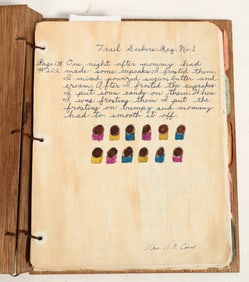 Trail Seekers Reg. No. 1
Page 138 One night after mommy had
#2 & 2 made some cupcakes I frosted them.
I mixed powered sugar, butter and
cream. After I frosted the cupcakes
I put some candy on them. When
I was frosting them I put the
frosting on bumpy and mommy
had to smooth it off.
Mrs. A. E.